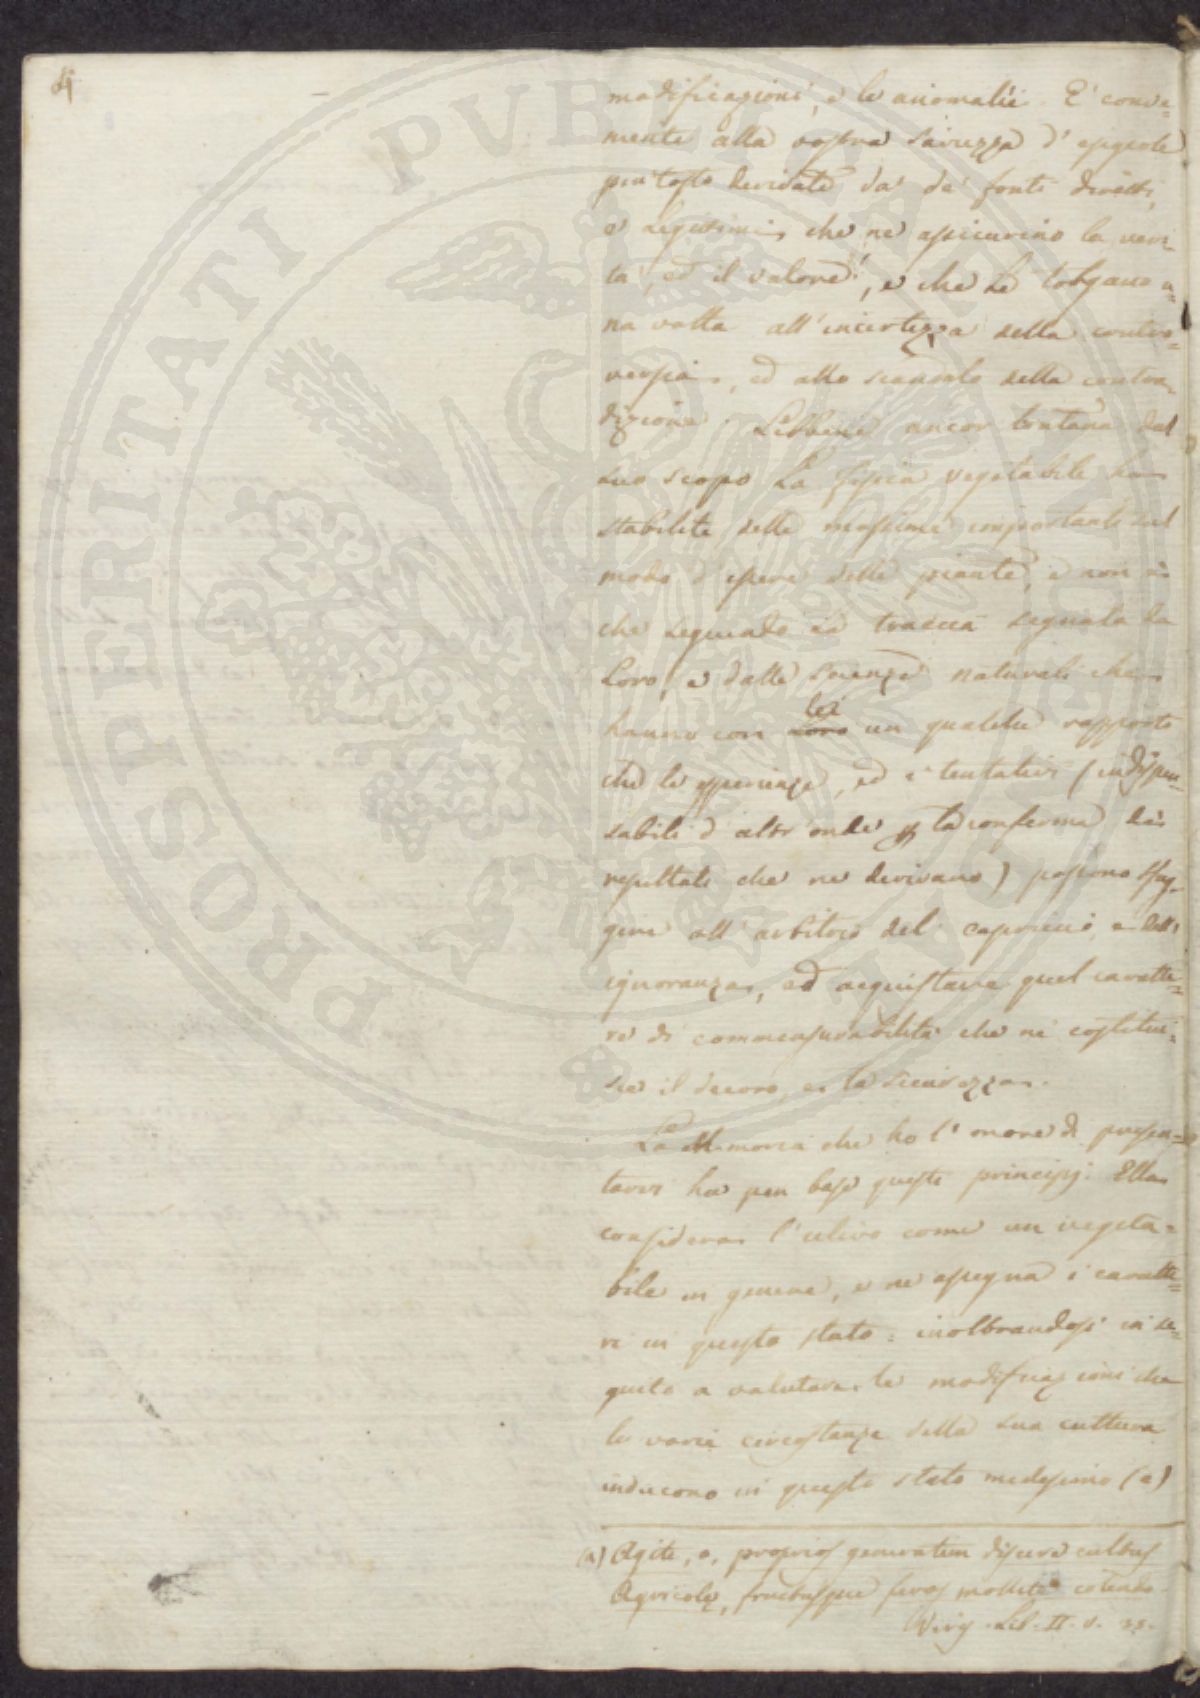 modificazioni, e le anomalie. E' conve=
niente alla vostra saviezza d'esigerle
piu tosto derivate da' de' fonti diretti,
e legittimi, che ne assicurino la veri-
tà, ed il valore, e che le tolgano u=
na volta all'incertezza della contro=
versia, ed allo scandalo della contra-
dizione. Sebbene ancor lontana dal
suo scopo La fisica vegetabile ha
stabilite delle massime importanti sul
modo d'essere delle piante, e non è
che seguendo la traccia segnata da
Loro, e dalle scienze naturali che
hanno con lei un qualche rapporto
che le esperienze, ed i tentativi (indispen=
sabili d'altr'onde p la conferma dei
resultati che ne derivano) possono sfug-
gire all'arbitrio del capriccio, e dell'
ignoranza, ed acquistare quel caratte=
re di commensurabilità che ne costitui=
sce il decoro, e la sicurezza.
La Memoria che ho l'onore di presen=
tarvi ha per base questi principj. Ella
considera l'ulivo come un vegeta=
bile in genere, e ne assegna i caratte=
ri in questo stato: inoltrandosi in se=
guito a valutare le modificazioni che
le varie circostanze della sua cultura
inducono in questo stato medesimo (a)
(a) Agite, o, proprios generatim discite cultus
Agricolæ, fructusque feros mollite colendo.
Virg. Lib. II. v. 35.
PROSPERITATI PUBLICAE